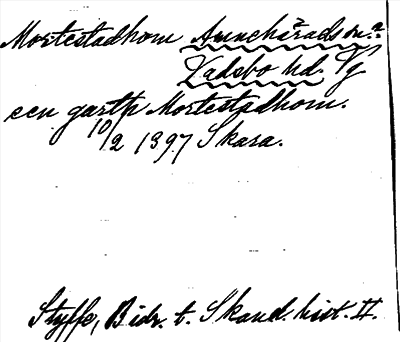 Mortestadhom Amnehärads sn.?
Vadsbo hd. Vg
een garth Mortestadhom.
10/2 1397 Skara.
Styffe, Bidr. t. Skand. hist. II.